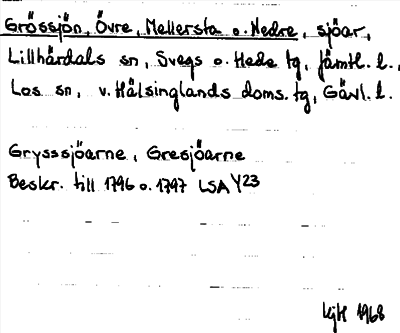 Grössjön, Övre, Mellersta o. Nedre, sjöar,
Lillhärdals sn, Svegs o. Hede tg, Jämtl. l.,
Los sn, v. Hälsinglands doms. tg, Gävl. l.
Grysssjöarne, Gresjöarne
Beskr. till 1796 o. 1797 LSA Y23
1968